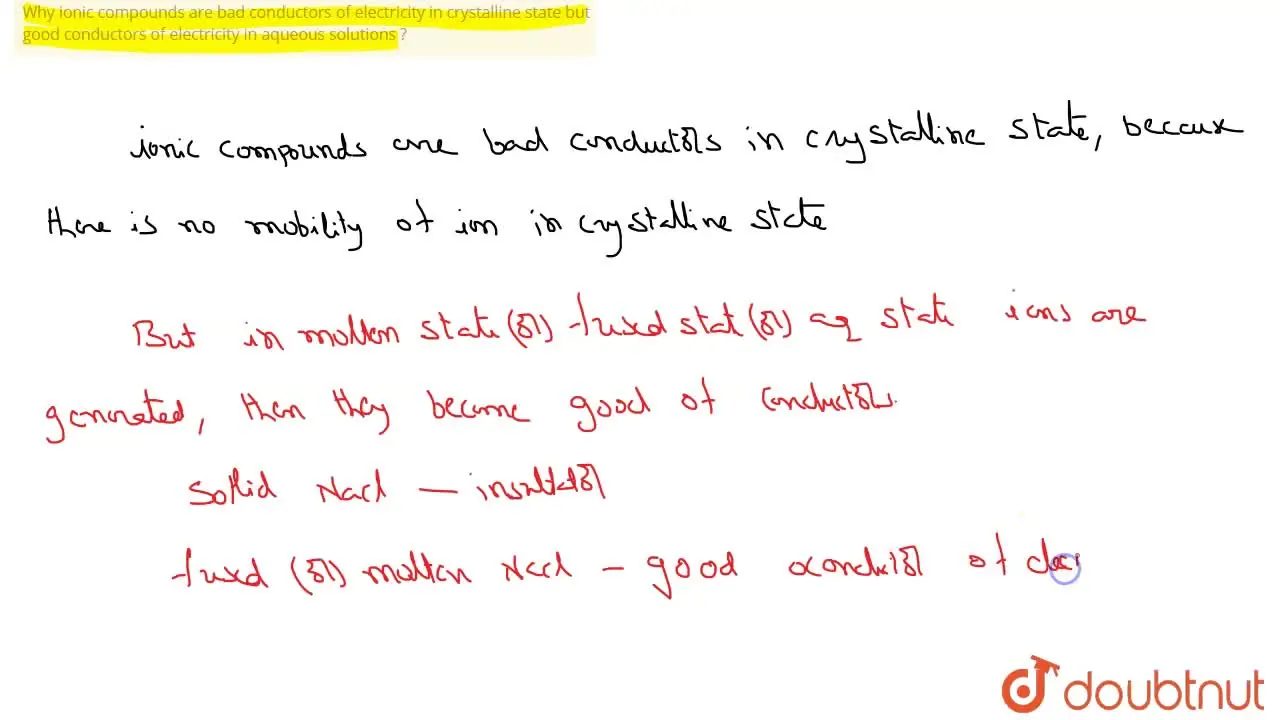 Why ionic compounds are bad conductors of electricity in crystalline state but
good conductors of electricity in aqueous solutions ?
ionic compounds are bad conductors in crystalline state, because
there is no mobility of ion in crystalline state
But in molten state (or) fused stat (or) aq state ions are
generated, then they become good of conductors.
Solid Nacl — insulator
fused (or) molten Nacl – good conductor of elec
doubtnut